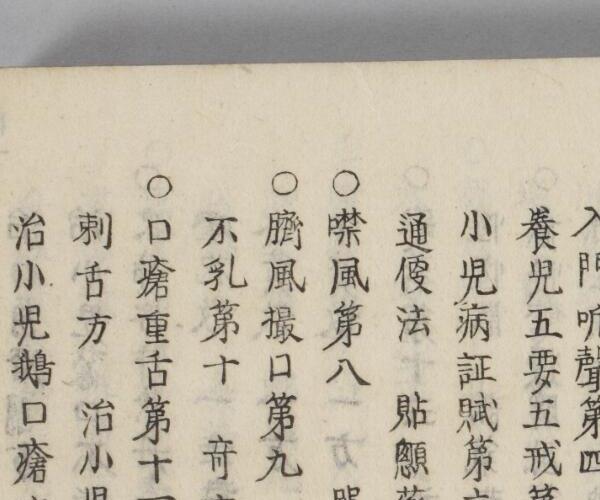 入門听聲第四
養児五要五戒
小児病証賦第
通便法 貼顖
○噤風第八
○臍風撮口第九
不乳第十
○口瘡重舌第十
刺舌方 治小児
治小児鵝口瘡